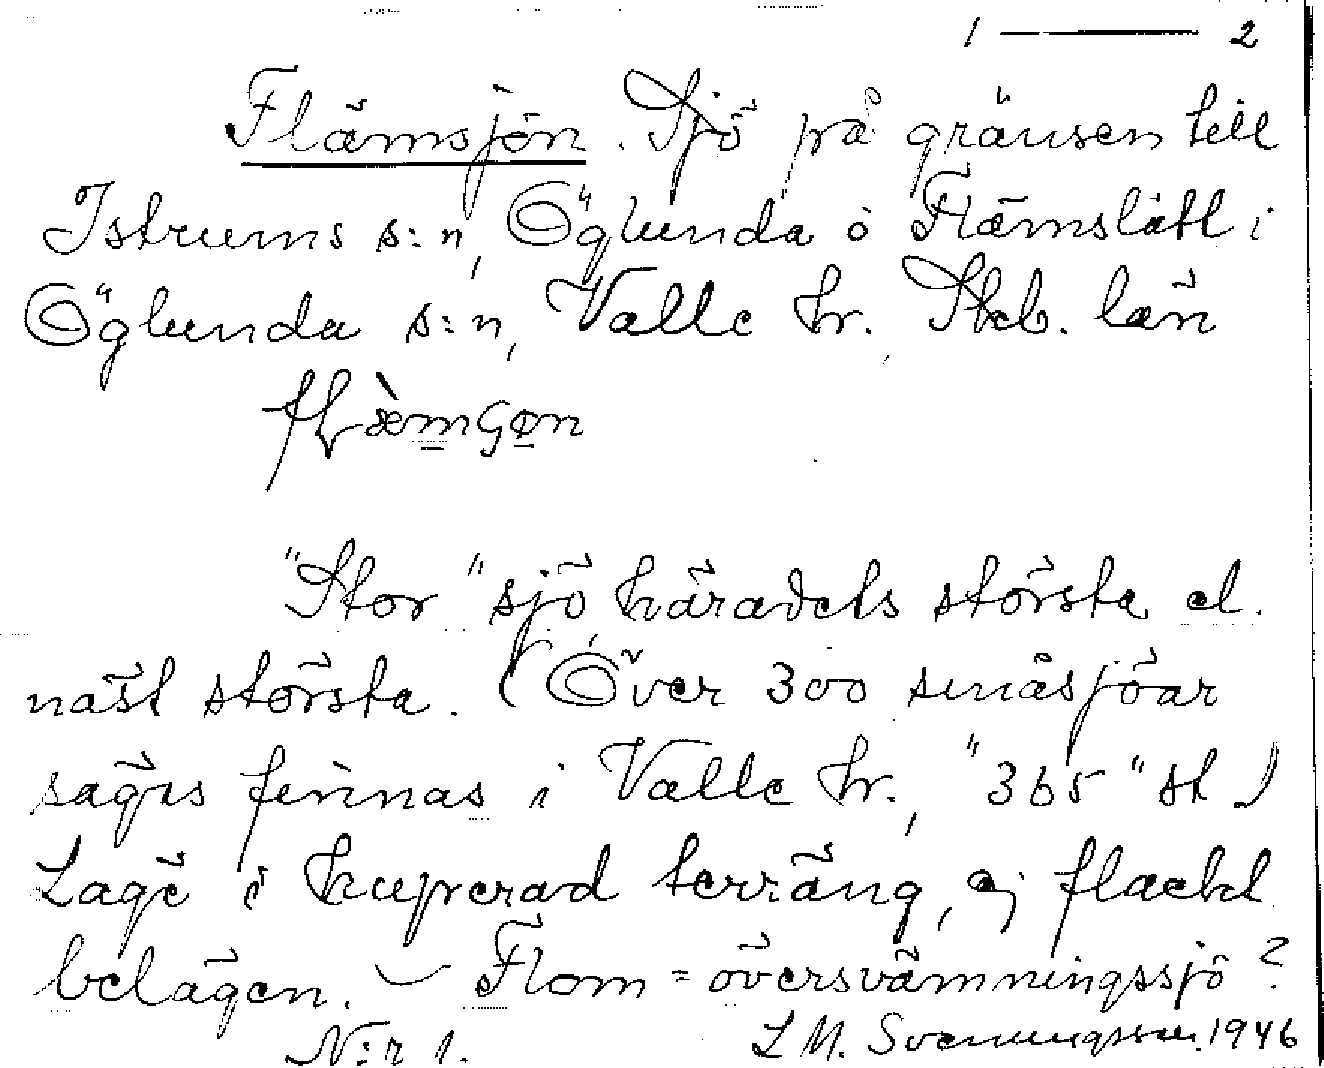 1 — 2
Flämsjön. Sjö på gränsen till
Istrums s:n, Öglunda o Flämslätt i
Öglunda s:n, Valle hr. Skb. län
"Stor" sjö häradets största el.
näst största. (Över 300 småsjöar
sägs finnas i Valle hr., "365" st)
Läge i kuperad terräng, ej flackt
belägen. – Flom = översvämningssjö?
N:r 1. L M. Svenungsson. 1946